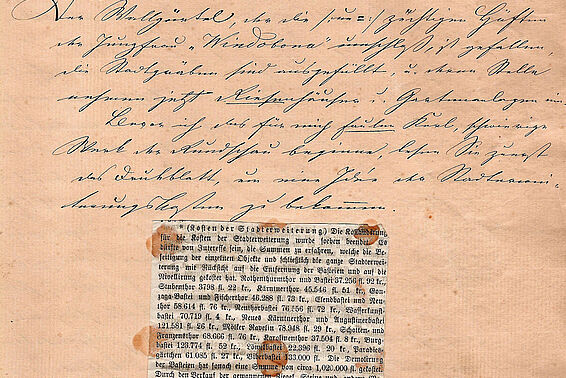 Der Wallgürtel, der die (:un=:) züchtigen Hüften
der Jungfrau „Windobona" umschloß, ist gefallen,
die Stadtgräben sind ausgefüllt, u. deren Stelle
nehmen jetzt Riesenhäuser u. Gartenanlagen ein.
Bevor ich das für mich faulen Kerl, schwierige
Werk der Rundschau beginne, lesen Sie zuerst
das Druckblatt, um eine Idée der Stadterwei-
terungskosten zu bekommen.
* (Kosten der Stadterweiterung) Die
für die Kosten der Stadterweiterung wurde soeben beendet. Es
dürfte von Interesse sein, die Summen zu erfahren, welche die Be-
seitigung der einzelnen Objekte und schließlich die ganze Stadterwei-
terung mit Rücksicht auf die Entfernung der Basteien und auf die
Nivellirung gekostet hat. Rothenthurmthor und Bastei 37.256 fl. 92 kr.
Stubenthor 3798 fl. 22 kr., Kärntnerthor 45.546 fl. 51 kr., Gon-
zaga-Bastei und Fischerthor 46.288 fl. 73 kr., Elendbastei und Neu-
thor 58.614 fl. 76 kr., Neuthorbastei 76.556 fl. 72 kr., Wasserkunst-
bastei 70.719 fl. 4 kr., Neues Kärntnerthor und Augustinerbastei
121.581 fl. 26 kr., Mölker Ravelin 78.948 fl. 29 kr., Schotten- und
Franzensthor 68.666 fl. 76 kr., Karolinenthor 37.504 fl. 8 kr., Burg-
bastei 123.774 fl. 52 kr., Löwelbastei 22.396 fl. 20 kr., Paradies-
gärtchen 61.085 fl. 27 kr., Biberbastei 33.000 fl. Die Demolirung
der Basteien hat sonach eine Summe von circa 1,020.000 fl. gekostet
Durch den Verkauf der gewonnenen Ziegel, Steine und anderer